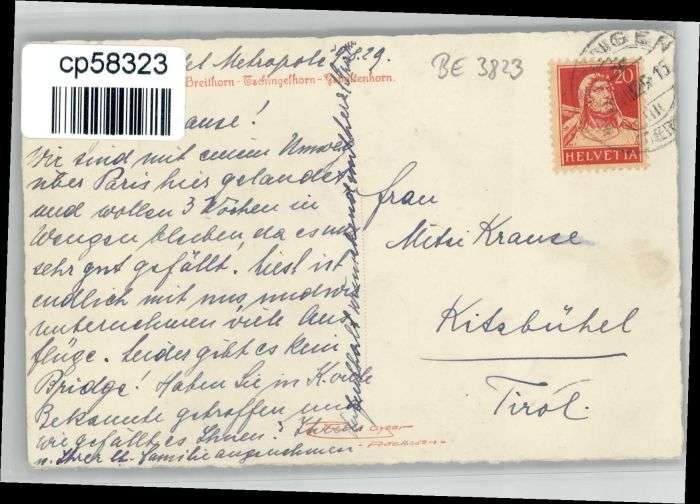 cp58323
Metropole 8.29.
BE 3823
Breithorn - Tschingelhorn -
20
HELVETIA
Krause!
Wir sind mit einem Umweg
über Paris hier gelandet
und wollen 3 Wochen in
Wengen bleiben, da es uns
sehr gut gefällt. Liesl ist
endlich mit uns, und wir
unternehmen viele Aus
flüge. Leider gibt es kein
Bridge! Haben Sie in K. viele
Bekannte getroffen und
wie gefällt es Ihnen?
u. Ihrer lb. Familie angenehmen
Frau
Mitzi Krause
Kitzbühel
Tirol.